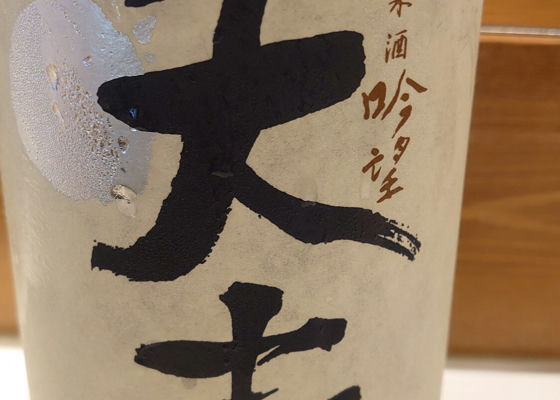 米酒
吟望
天青